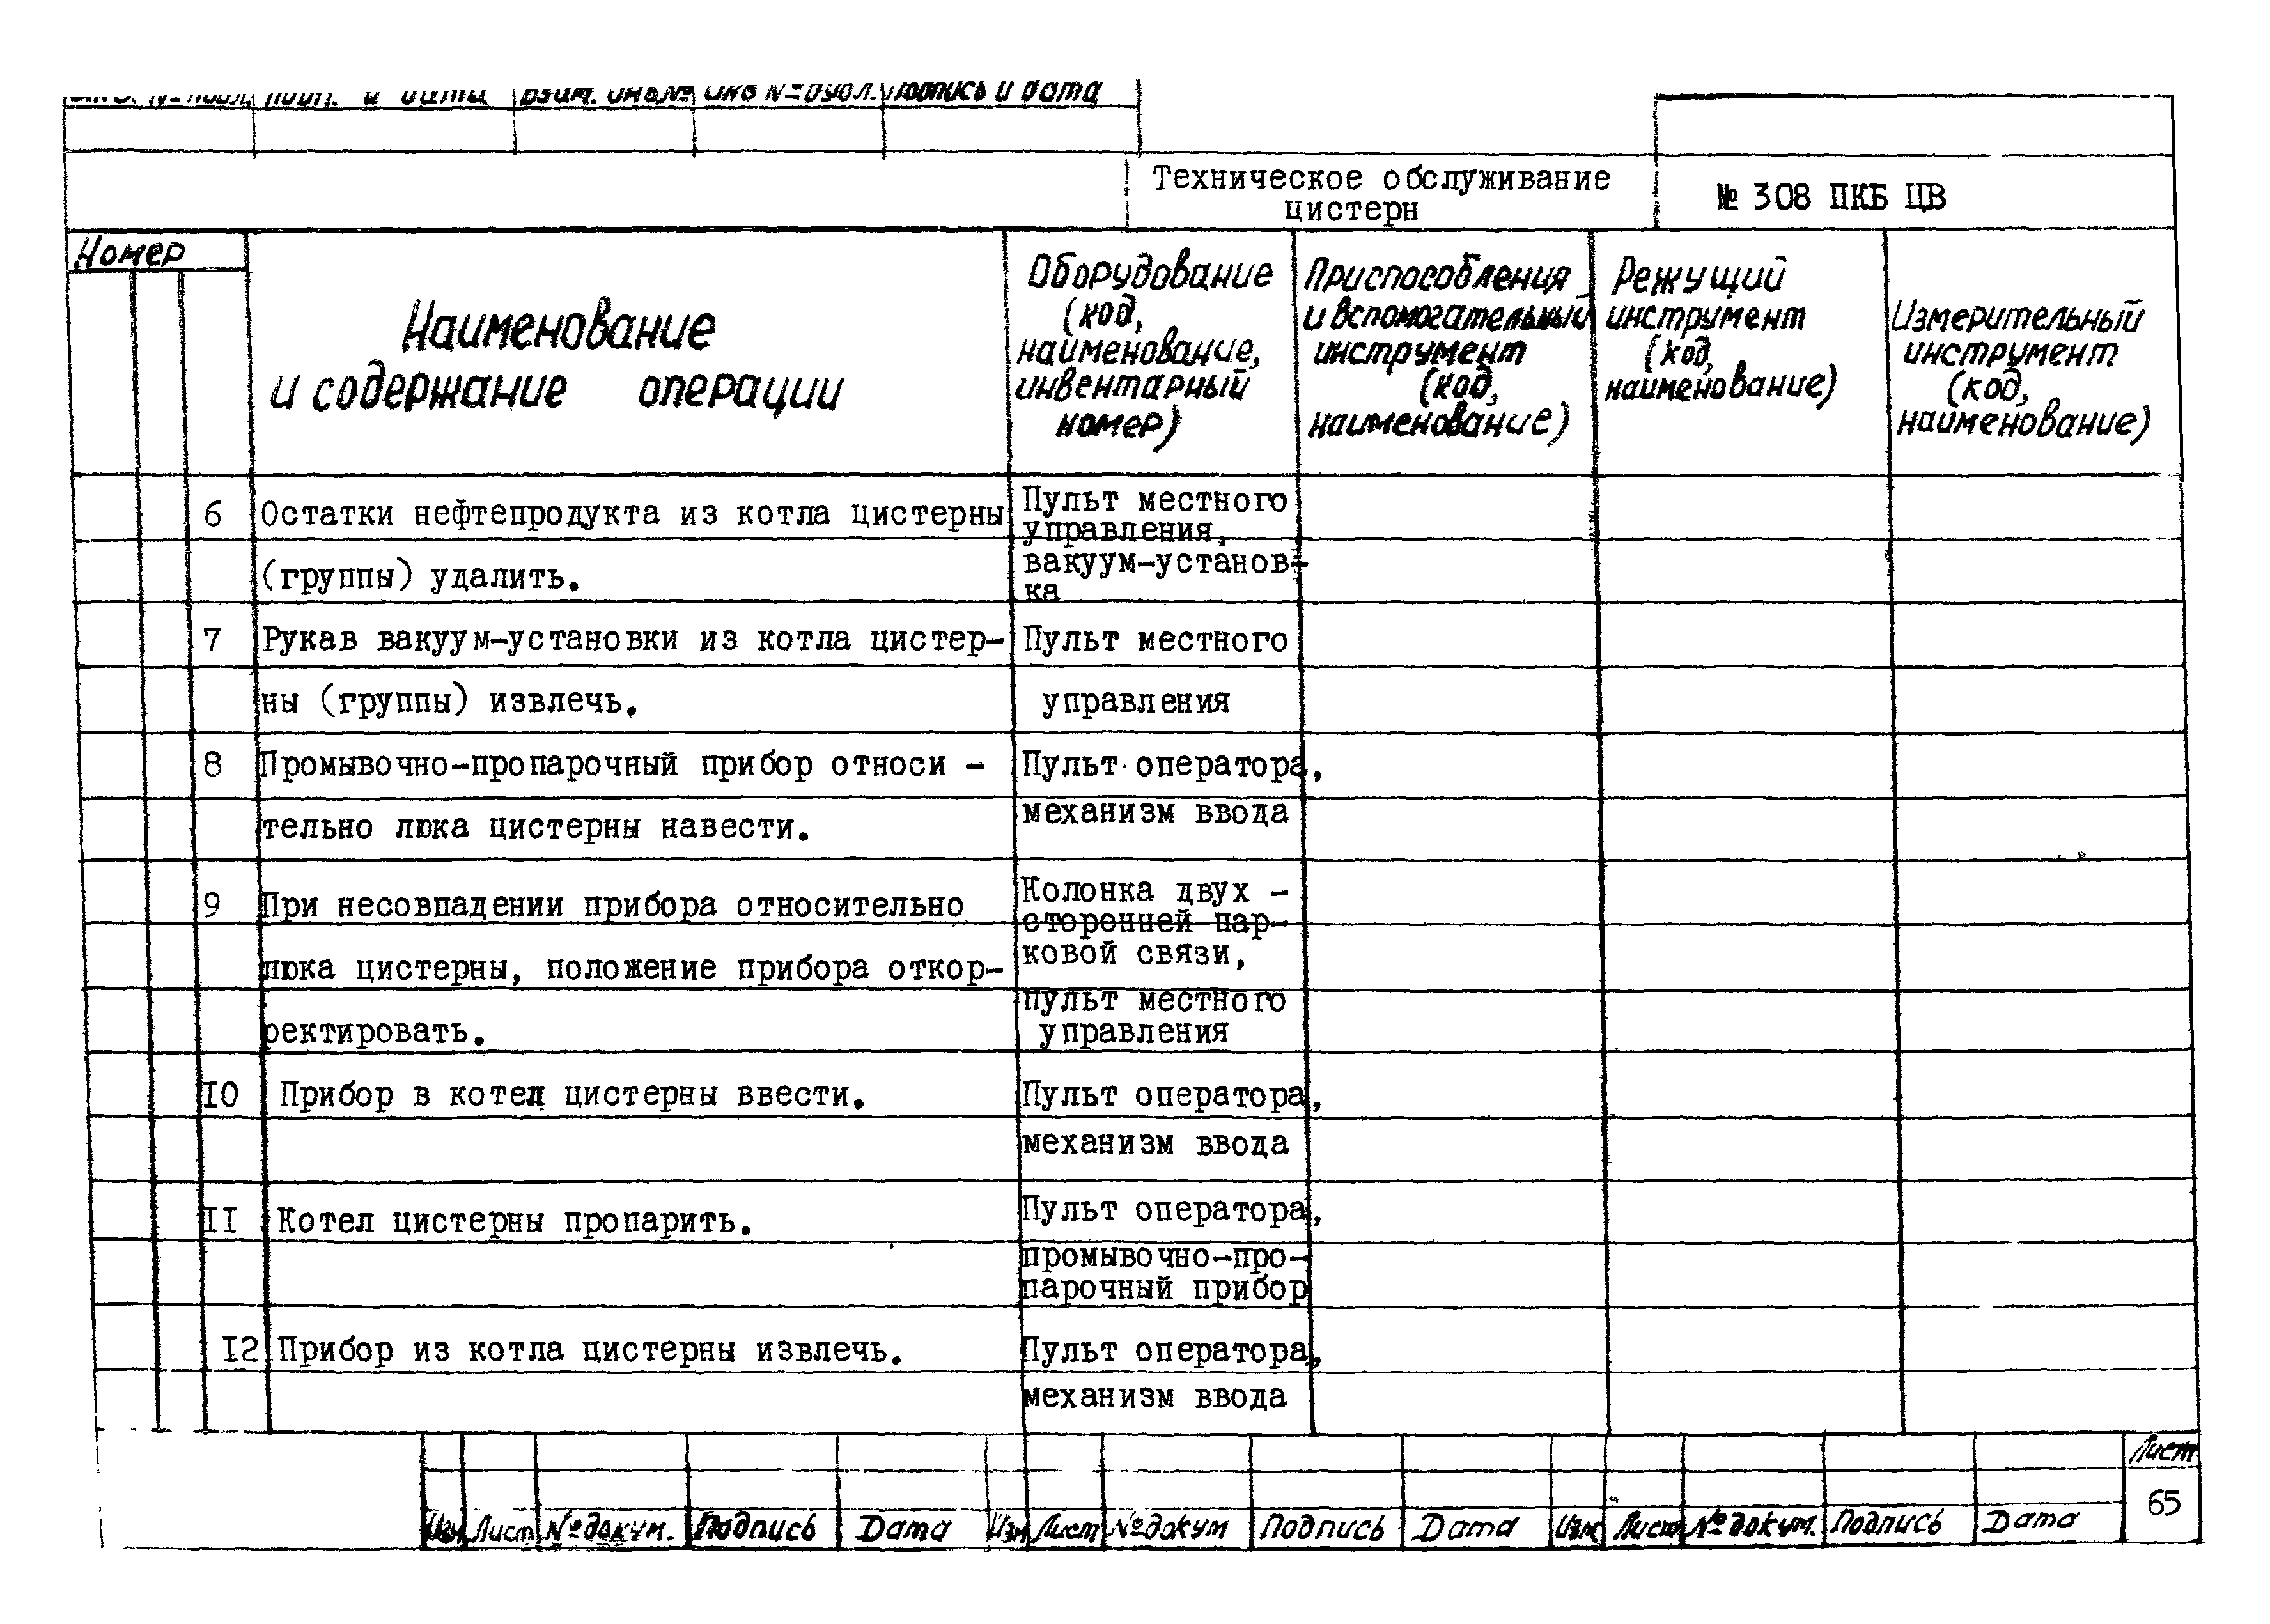 Подпись и дата
Техническое обслуживание
цистерн
№ 308 ПКБ ЦВ
Номер
Наименование
и содержание операции
Оборудование
(код,
наименование,
инвентарный
номер)
Приспособления
и вспомогательный
инструмент
(код,
наименование)
Режущий
инструмент
(код,
наименование)
Измерительный
инструмент
(код,
наименование)
6 Остатки нефтепродукта из котла цистерны
(группы) удалить.
Пульт местного
управления,
вакуум-установ-
ка
7 Рукав вакуум-установки из котла цистер-
ны (группы) извлечь.
Пульт местного
управления
8 Промывочно-пропарочный прибор относи -
тельно люка цистерны навести.
Пульт оператора,
механизм ввода
9 При несовпадении прибора относительно
люка цистерны, положение прибора откор-
ректировать.
Колонка двух -
сторонней пар-
ковой связи,
пульт местного
управления
10 Прибор в котел цистерны ввести.
Пульт оператора,
механизм ввода
11 Котел цистерны пропарить.
Пульт оператора,
промывочно-про-
парочный прибор
12 Прибор из котла цистерны извлечь.
Пульт оператора,
механизм ввода
Изм Лист № докум. Подпись Дата Изм Лист № докум Подпись Дата Изм Лист № докум. Подпись Дата
Лист
65